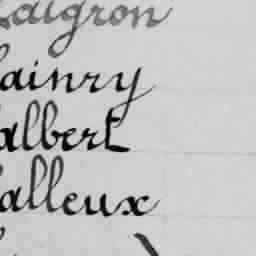 Laigron
Lainry
Lalbert
Lalleux